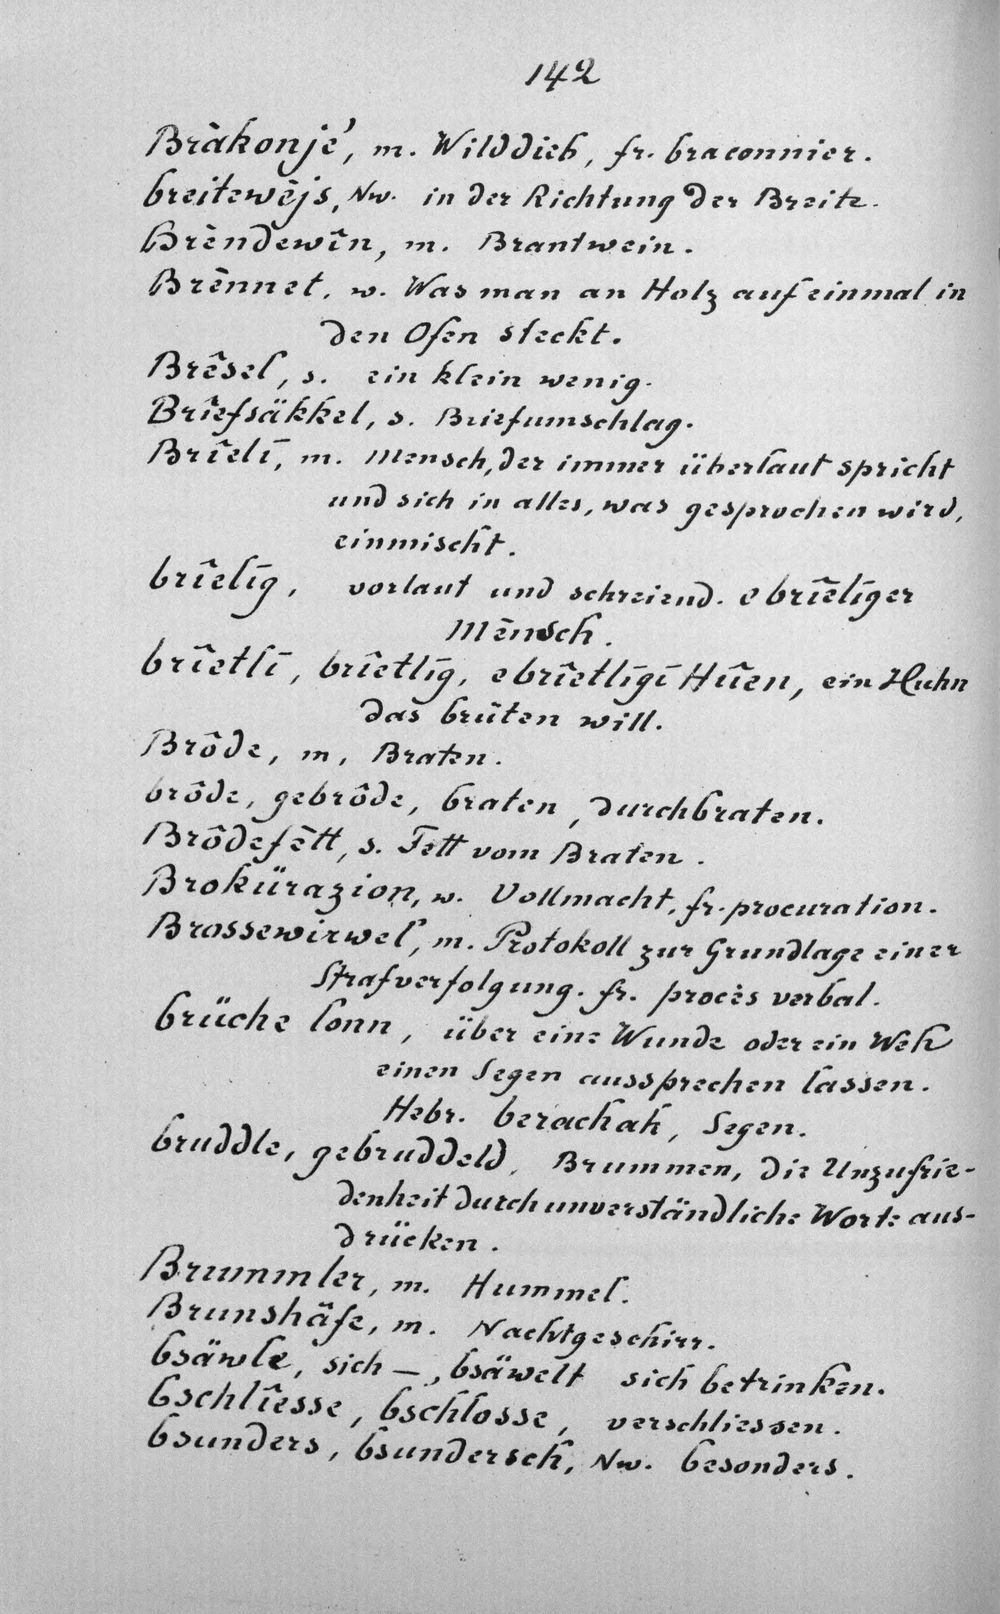 142
Bràkonjé, m. Wilddieb, fr. braconnier.
breitewèjs, Nw. in der Richtung der Breite.
Brèndewîn, m. Brantwein.
Brènnet, w. Was man an Holz auf einmal in
den Ofen steckt.
Brêsel, s. ein klein wenig.
Brîefsäkkel, s. Briefumschlag.
Brîelī, m. Mensch, der immer überlaut spricht
und sich in alles, was gesprochen wird,
einmischt.
brîelīg, vorlaut und schreiend. e brîelīger
Mènsch.
brîetlī, brîetlīg, e brîetlīgī Hûen, ein Huhn
das brüten will.
Brôde, m, Braten.
brôde, gebrôde, braten, durchbraten.
Brôdefètt, s. Fett vom Braten.
Brokürazion, w. Vollmacht, fr. procuration.
Brossewirwel, m. Protokoll zur Grundlage einer
Strafverfolgung. fr. procès verbal.
brüche lonn, über eine Wunde oder ein Weh
einen Segen aussprechen lassen.
Hebr. berachah, Segen.
bruddle, gebruddeld, Brummen, die Unzufrie-
denheit durch unverständliche Worte aus-
drücken.
Brummler, m. Hummel.
Brunshäfe, m. Nachtgeschirr.
bsäwle, sich —, bsäwelt sich betrinken.
bschlîesse, bschlosse, verschliessen.
bsunders, bsundersch, Nw. besonders.